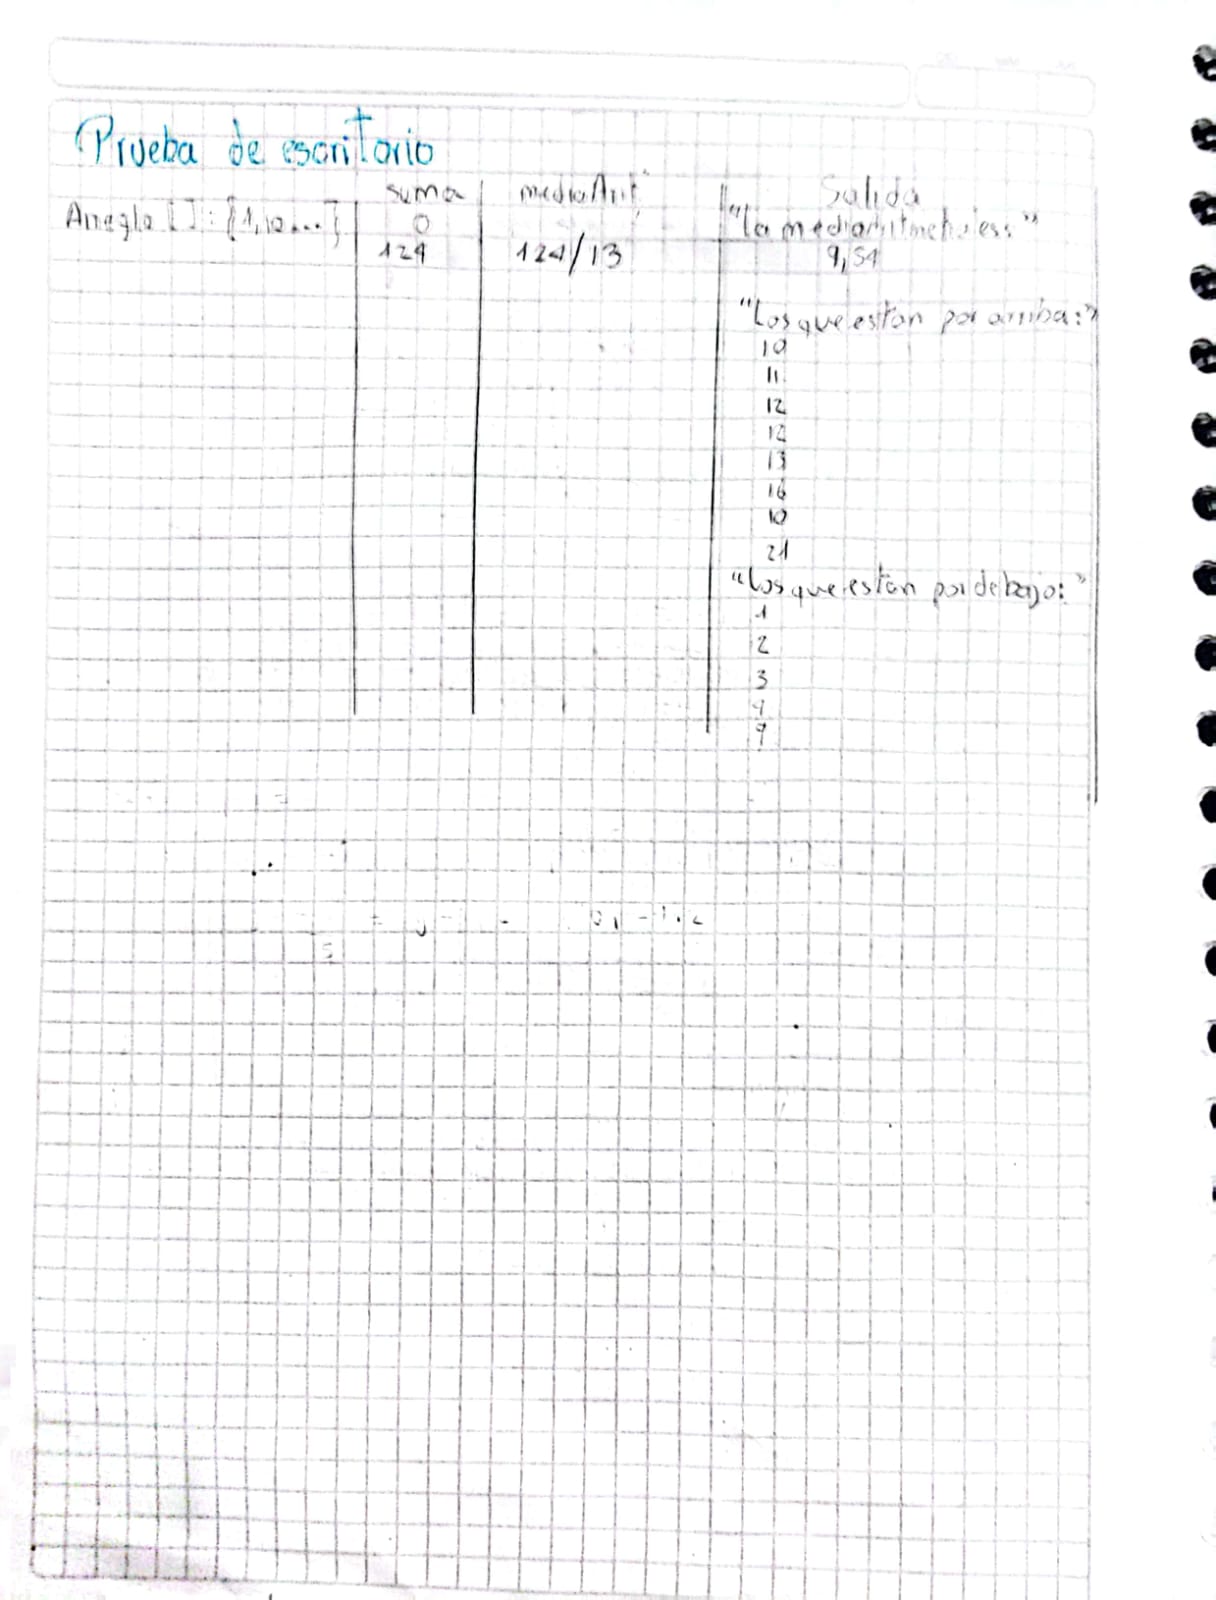 Prueba de escritorio
suma mediaArit Salida
Arreglo [ ]: {1,10...} 0 "la mediaAritmeticaes:"
124 124/13 9,54
"Los que estan por arriba:"
10
11
12
12
13
16
10
21
"Los que estan por debajo:"
1
2
3
4
9